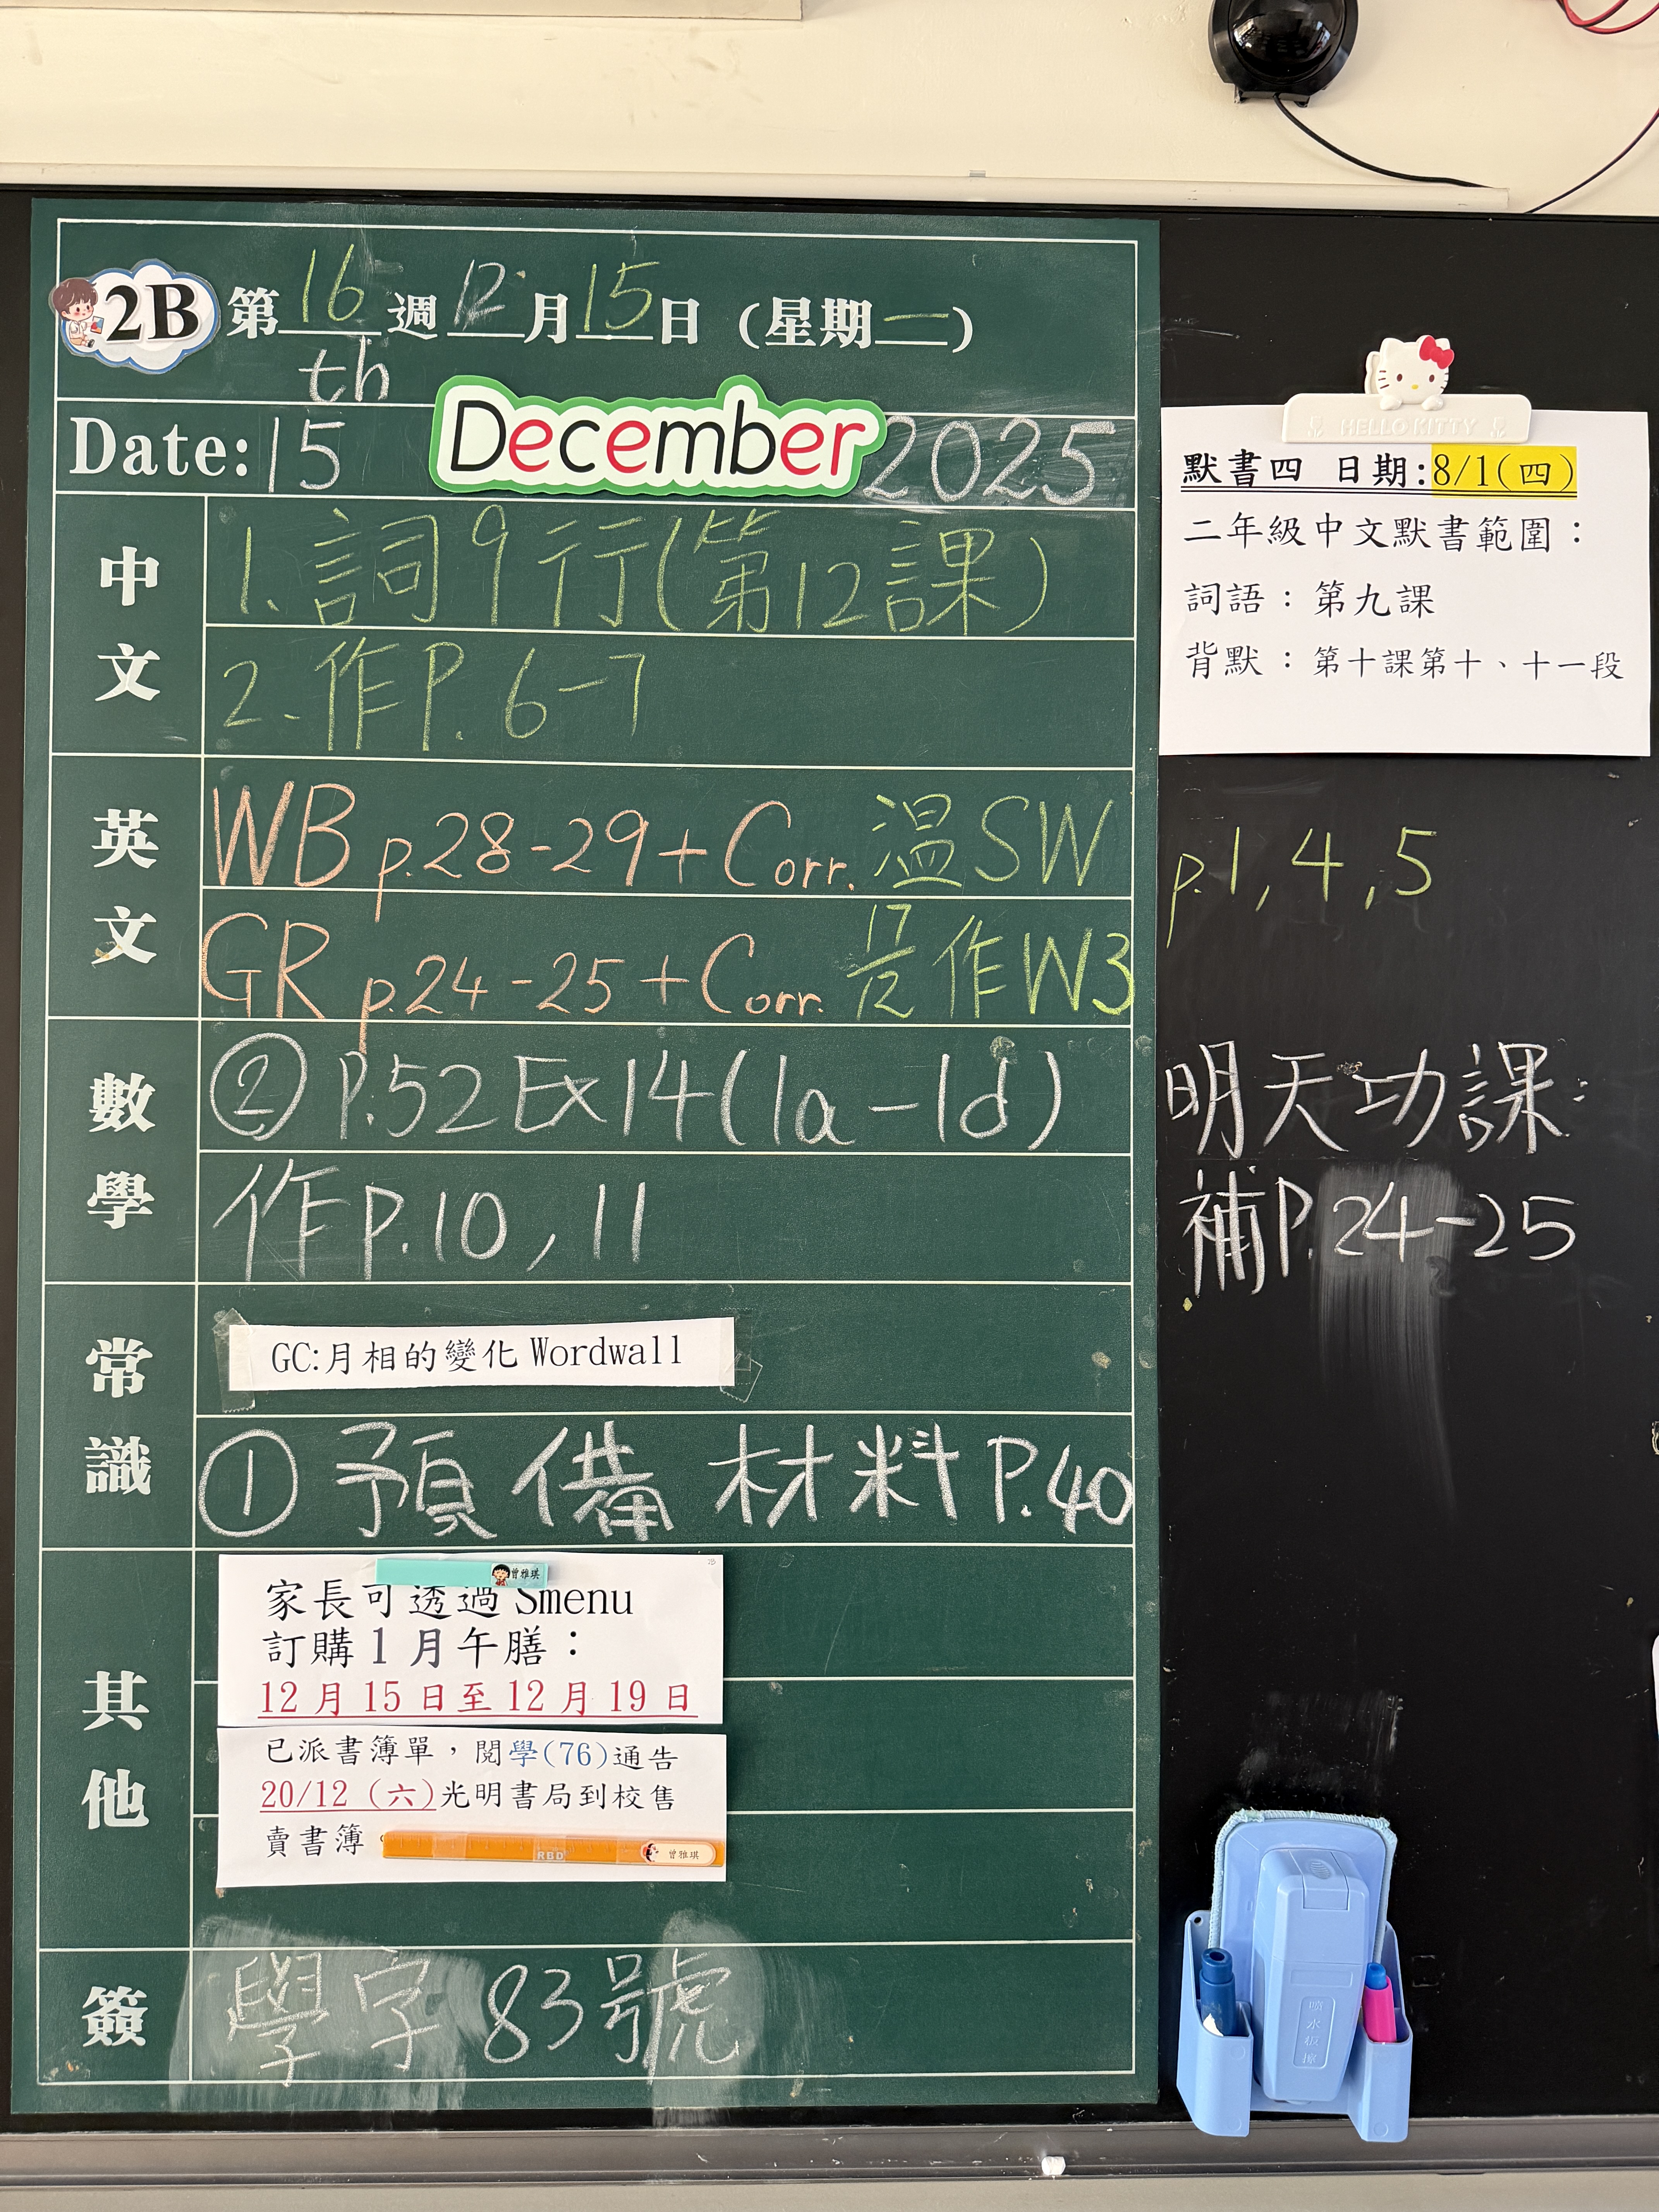 2B 第16週12月15日(星期一)
Date: 15th December 2025
中文
1. 詞9行(第12課)
2. 作P. 6-7
英文
WB p.28-29+Corr. 溫SW p.1, 4, 5
GR p.24-25+Corr. 17/12 作W3
數學
② P.52 Ex14(1a-1d)
作P.10, 11
常識
GC:月相的變化 Wordwall
① 預備材料P.40
其他
曾雅琪
家長可透過 Smenu
訂購1月午膳：
12月15日至12月19日
已派書簿單，閱學(76)通告
20/12 (六)光明書局到校售
賣書簿。
RBD 曾雅琪
簽
學字83號
HELLO KITTY
默書四 日期:8/1(四)
二年級中文默書範圍：
詞語：第九課
背默：第十課第十、十一段
明天功課:
補P.24-25
喷水板擦